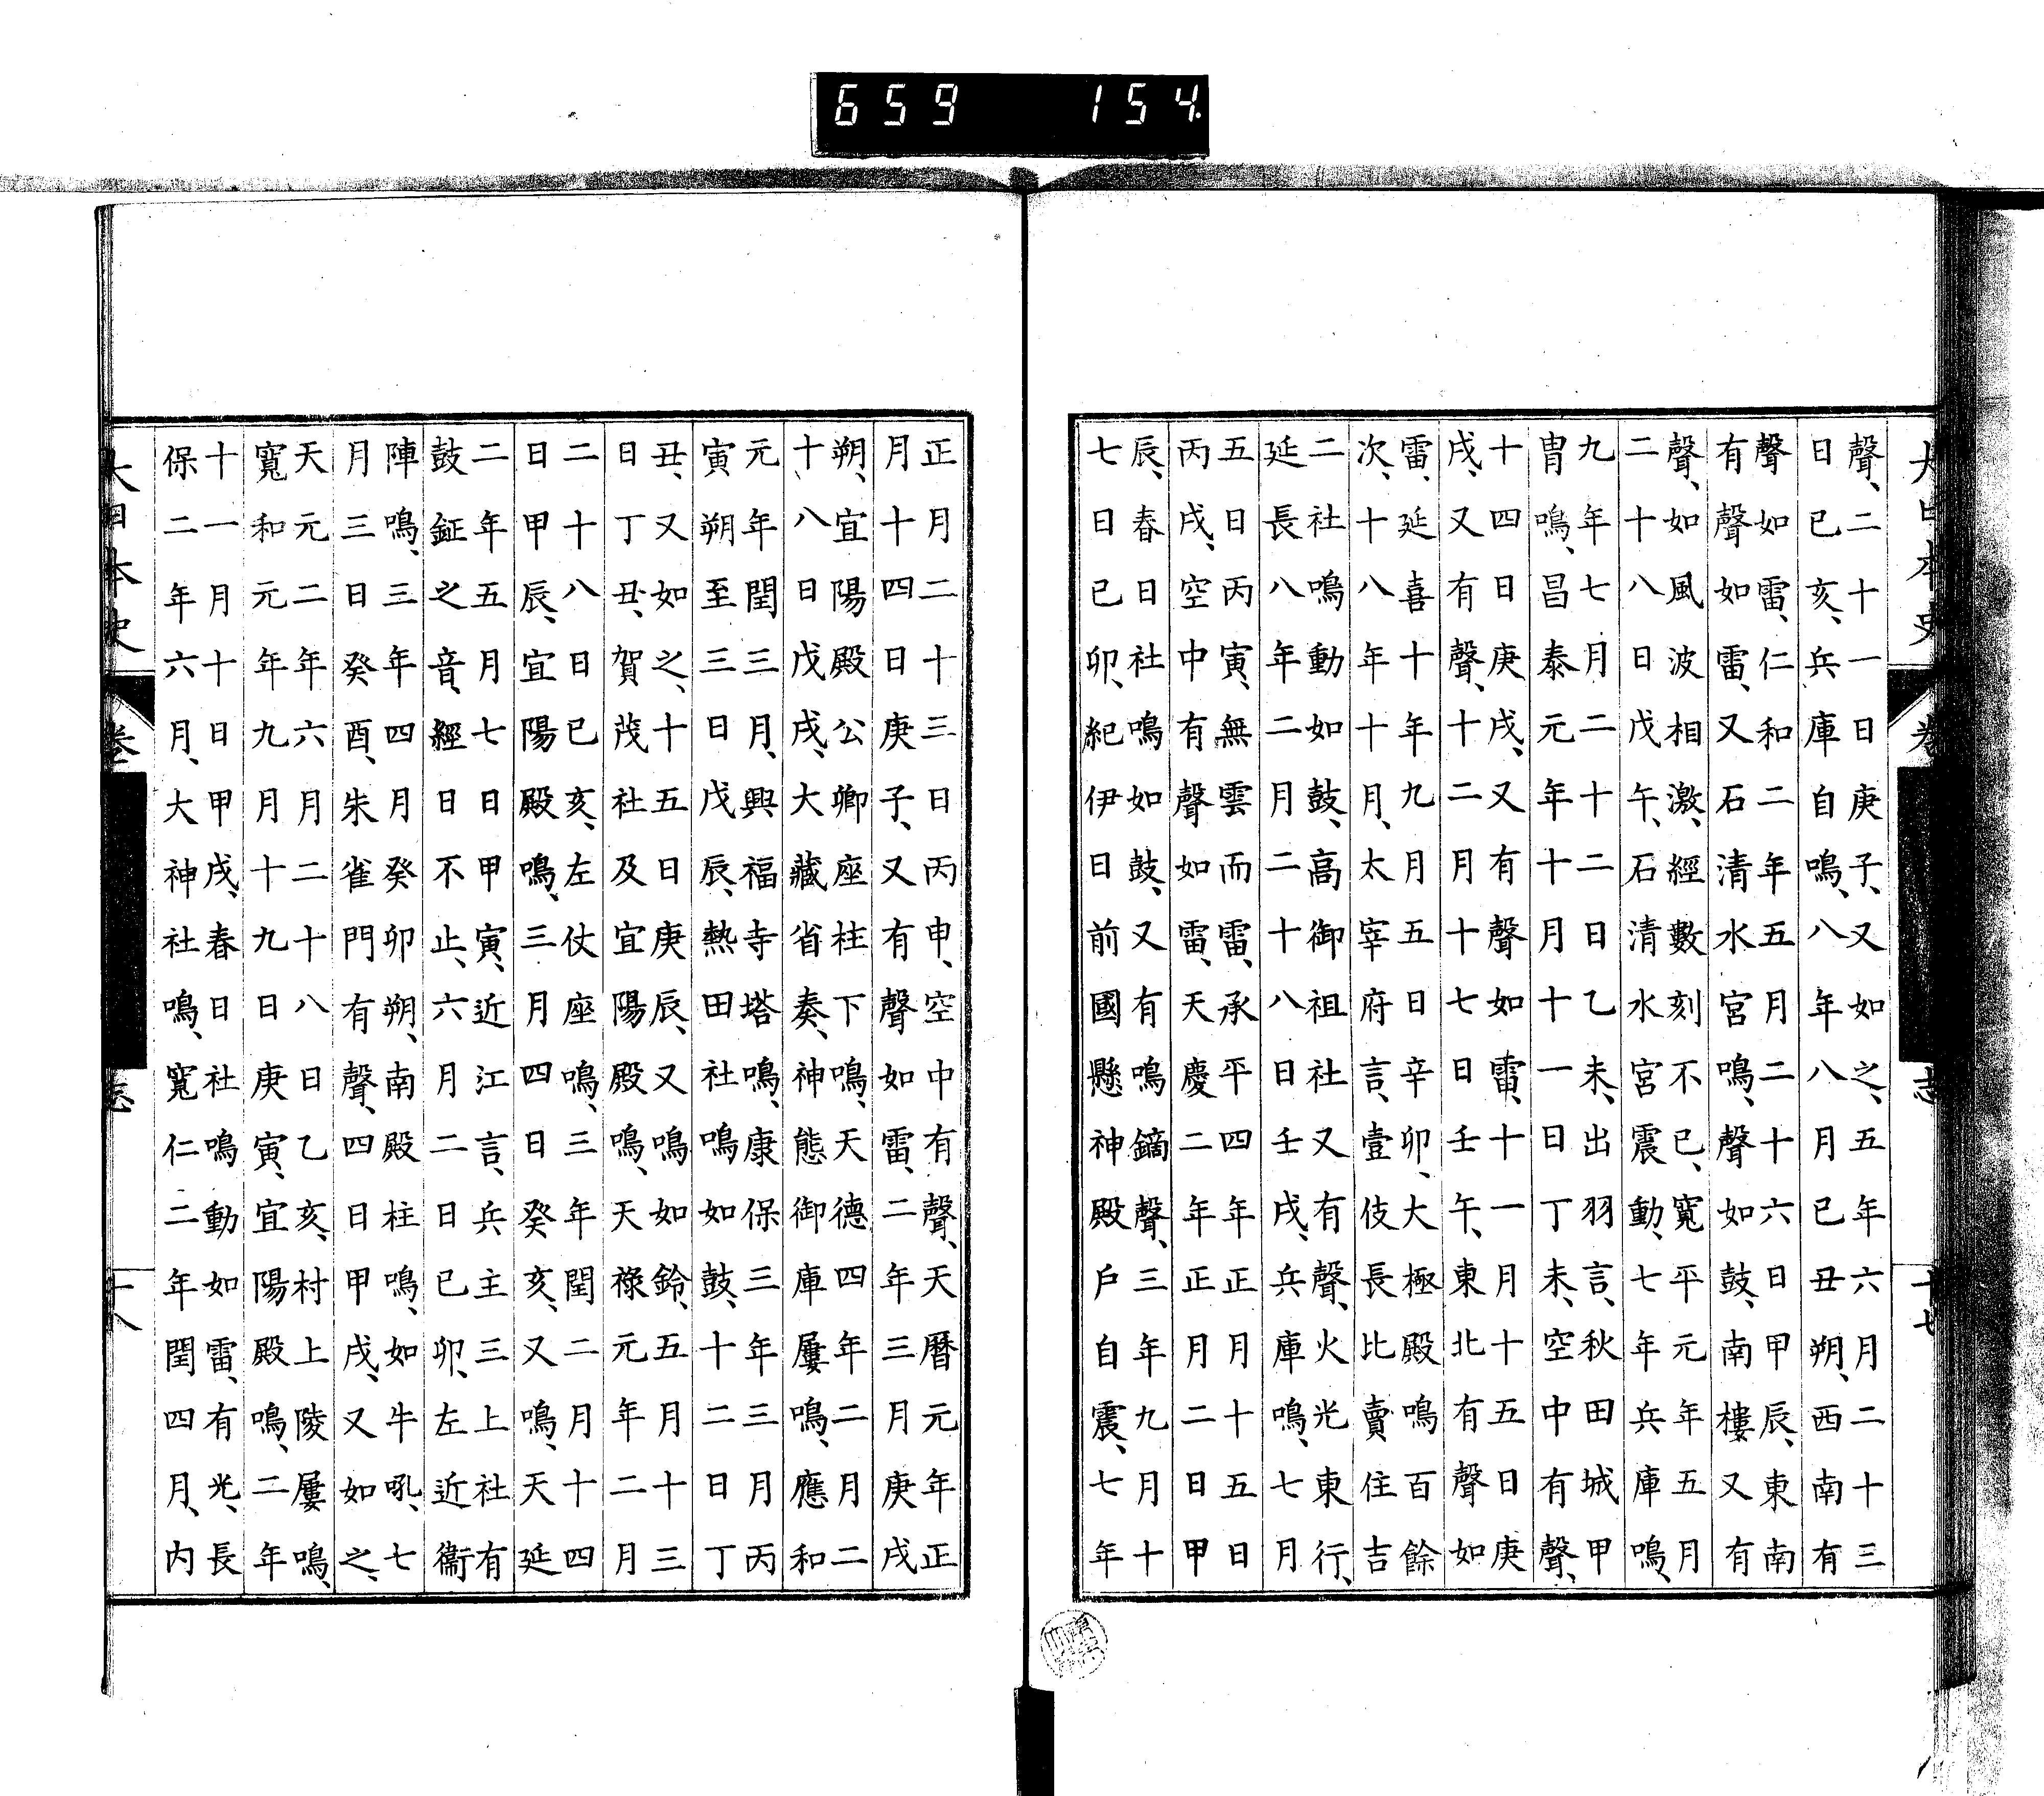 大日本史 卷 志 十七
聲、二十一日庚子、又如之、五年六月二十三
日已亥、兵庫自鳴、八年八月已丑朔、西南有
聲如雷、仁和二年五月二十六日甲辰、東南
有聲如雷、又石清水宮鳴、聲如鼓、南樓又有
聲、如風波相激、經數刻不已、寬平元年五月
二十八日戊午、石清水宮震動、七年兵庫鳴、
九年七月二十二日乙未、出羽言、秋田城甲
冑鳴、昌泰元年十月十一日丁未、空中有聲、
十四日庚戌、又有聲如雷、十一月十五日庚
戌、又有聲、十二月十七日壬午、東北有聲如
雷、延喜十年九月五日辛卯、大極殿鳴百餘
次、十八年十月、太宰府言、壹伎長比賣住吉
二社鳴動如鼓、高御祖社又有聲、火光東行、
延長八年二月二十八日壬戌、兵庫鳴、七月
五日丙寅、無雲而雷、承平四年正月十五日
丙戌、空中有聲如雷、天慶二年正月二日甲
辰、春日社鳴如鼓、又有鳴鏑聲、三年九月十
七日已卯、紀伊日前國懸神殿戶自震、七年
正月二十三日丙申、空中有聲、天曆元年正
月十四日庚子、又有聲如雷、二年三月庚戌
朔、宜陽殿公卿座柱下鳴、天德四年二月二
十八日戊戌、大藏省奏、神態御庫屢鳴、應和
元年閏三月、興福寺塔鳴、康保三年三月丙
寅朔至三日戊辰、熱田社鳴如鼓、十二日丁
丑、又如之、十五日庚辰、又鳴如鈴、五月十三
日丁丑、賀茂社及宜陽殿鳴、天祿元年二月
二十八日已亥、左仗座鳴、三年閏二月十四
日甲辰、宜陽殿鳴、三月四日癸亥、又鳴、天延
二年五月七日甲寅、近江言、兵主三上社有
鼓鉦之音、經日不止、六月二日已卯、左近衞
陣鳴、三年四月癸卯朔、南殿柱鳴、如牛吼、七
月三日癸酉、朱雀門有聲、四日甲戌、又如之、
天元二年六月二十八日乙亥、村上陵屢鳴、
寬和元年九月十九日庚寅、宜陽殿鳴、二年
十一月十日甲戌、春日社鳴動如雷、有光、長
保二年六月、大神社鳴、寬仁二年閏四月、內
大日本史 卷 志 十八
659 154